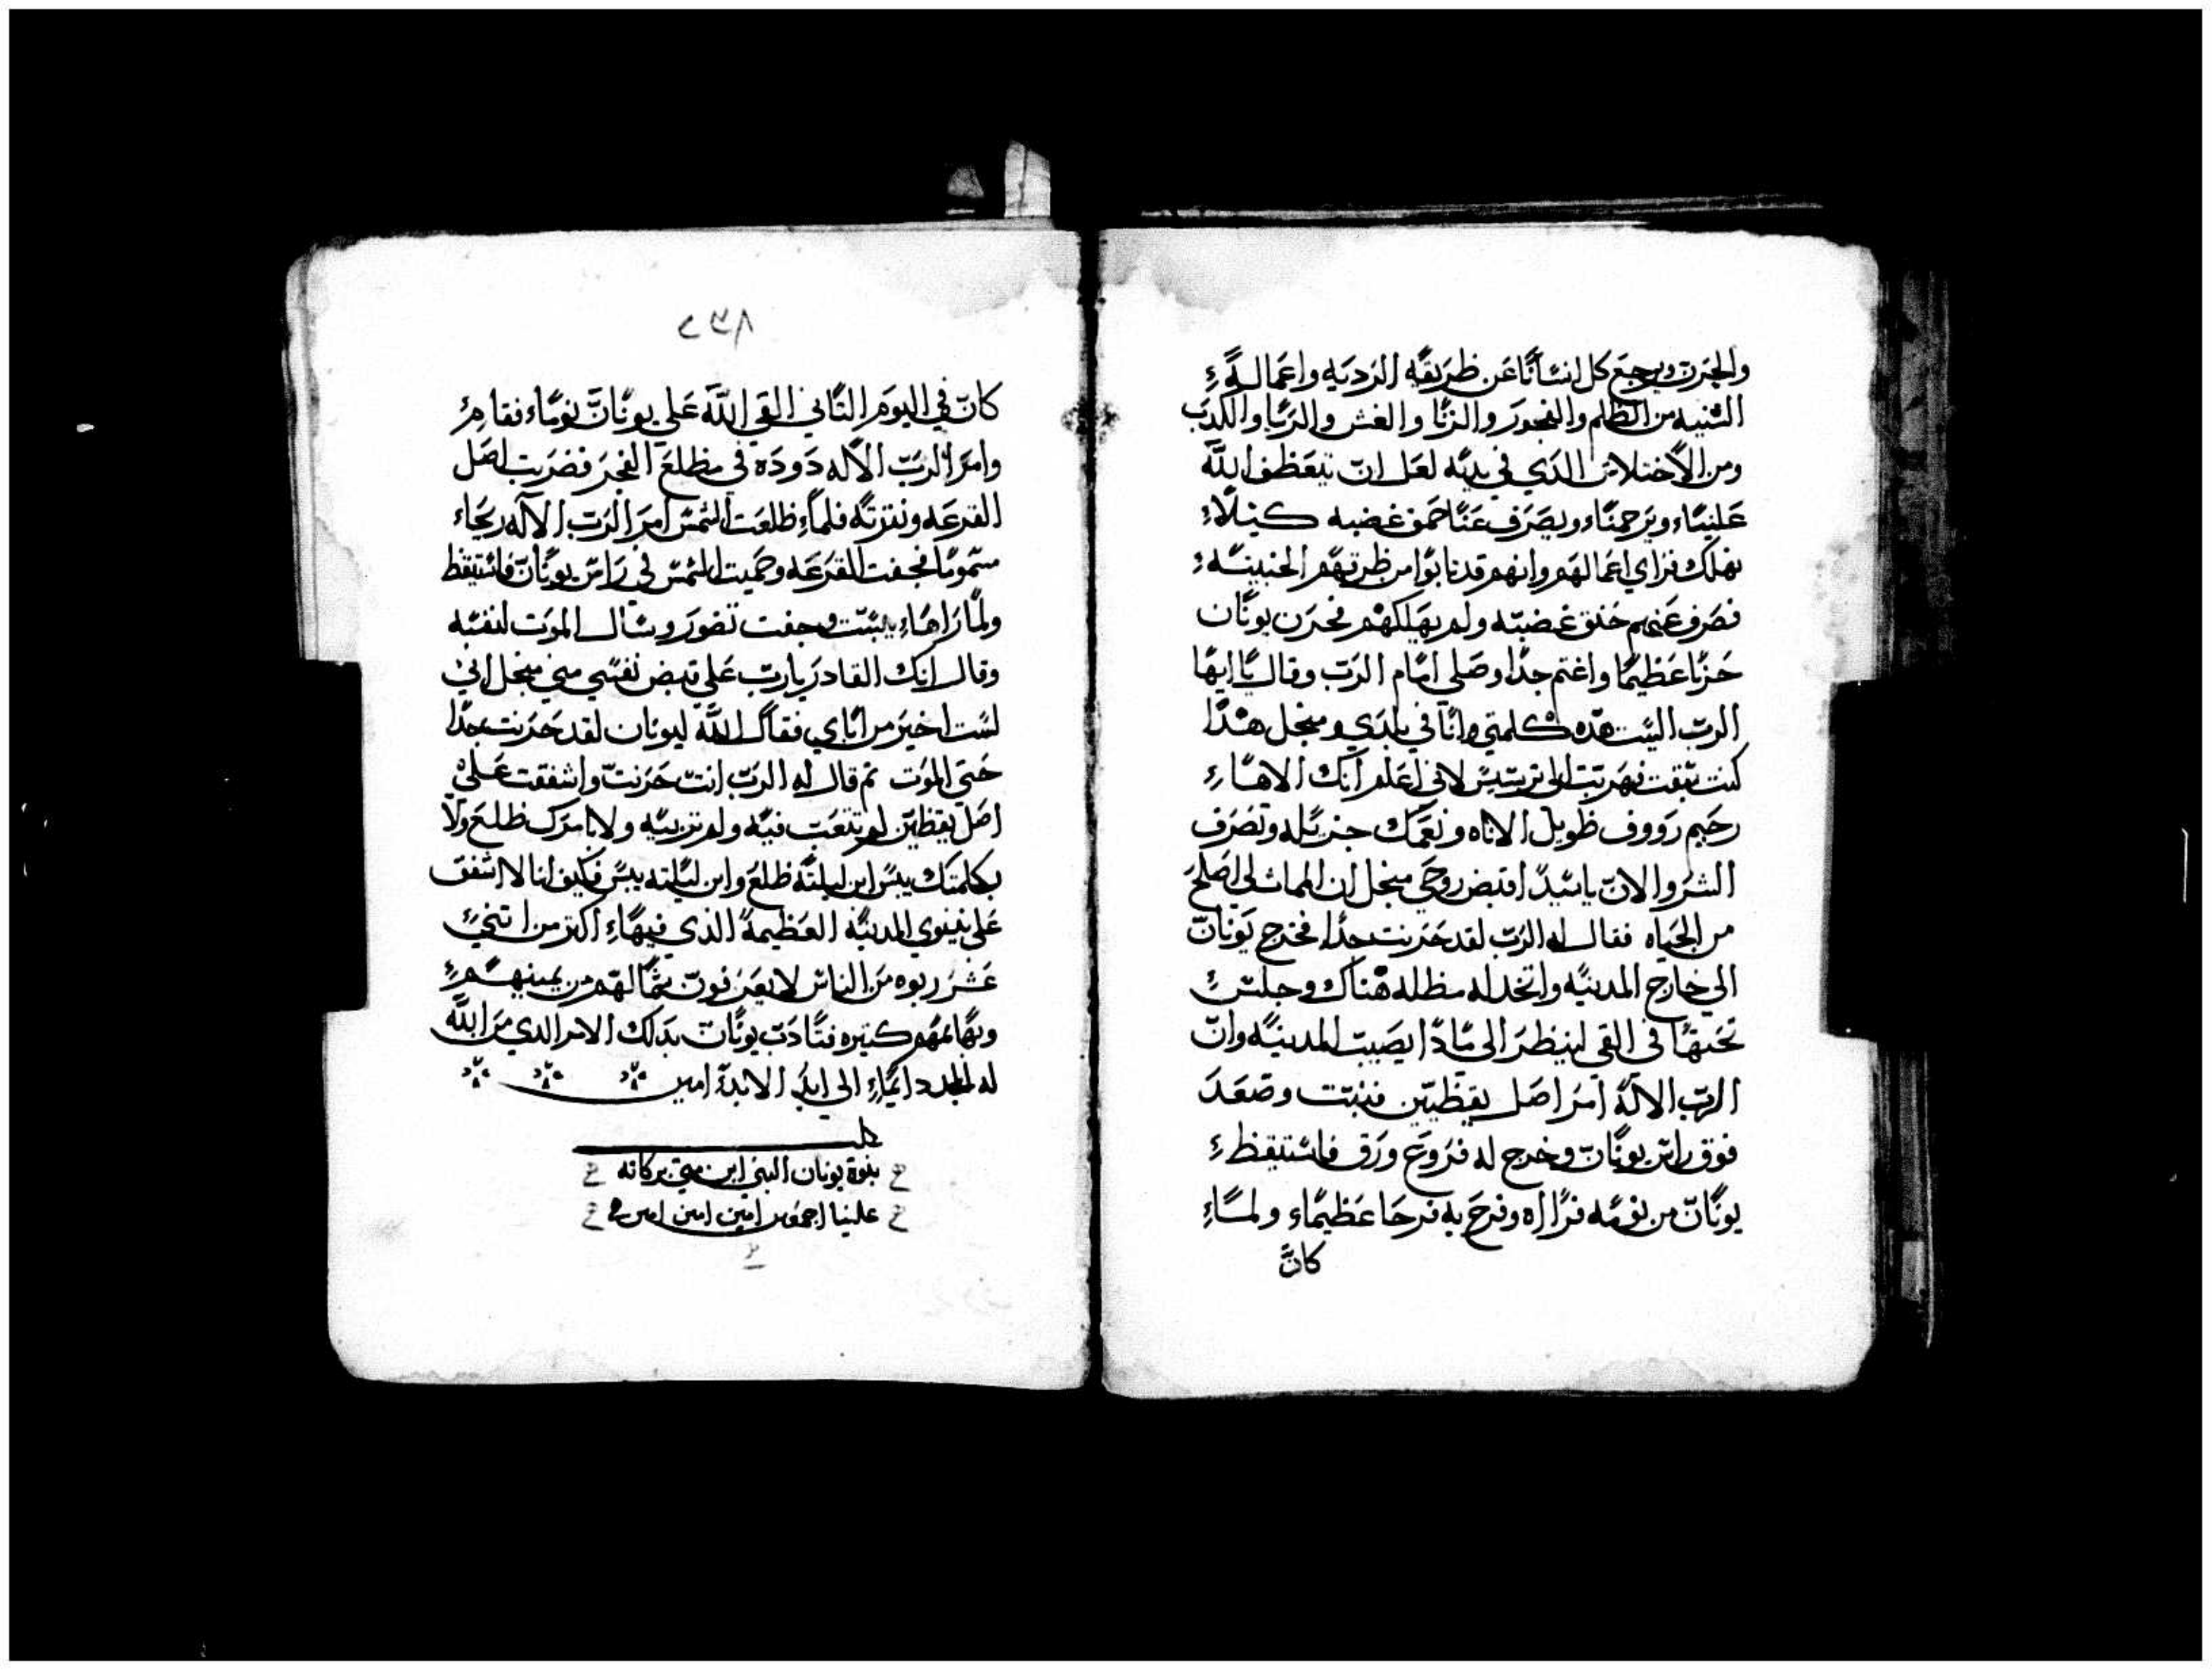 والحزن ويرجع كل انسانًا عن طريقه الرديه واعماله
الشنيه من الظلم والفجور والزنا والغش والربا والكدب
ومن الاختلاس الدي في يديه لعل ان يتعطف الله
علينا ويرحمنا ويصرف عنا حمو غضبه كيلا
نهلك فراي اعمالهم وانهم قد تابوا من طرقهم الخبيثه
فصرف عنهم حنق غضبه ولم يهلكهم فحزن يونان
حزنا عظيما واغتم جدا وصلي امام الرب وقال يا ايها
الرب اليست هده كلمتي وانا في بلدي ومنجل هدا
كنت سبقت فهربت الي ترسيس لاني اعلم انك الاها
رحيم رووف طويل الاناه ونعمك جزيله وتصرف
الشر والان ياسيد اقبض روحي منجل ان الممات لي اصلح
من الحياه فقال له الرب لقد حزنت جدا فخرج يونان
الي خارج المدينه واتخد له مظله هناك وجلس
تحتها في الفي لينظر الي مادا يصيب المدينه وان
الرب الاله امر اصل يقطين فنبتت وصعد
فوق راس يونان وخرج له فروع ورق فاستيقظ
يونان من نومه فراه وفرح به فرحا عظيما ولما
كان
٢٣٨
كان في اليوم التاني القي الله علي يونان نوما فقام
وامر الرب الاله دوده في مطلع الفجر فضربت اصل
القرعه ونقرته فلما طلعت الشمس امر الرب الاله ريحا
سموما فجفت القرعه وحميت الشمس في راس يونان فاستيقظ
ولما راها يبست وجفت تضور وسال الموت لنفسه
وقال انك القادر يارب علي قبض نفسي مني منجل اني
لست اخير من اباي فقال الله ليونان لقد حزنت جدا
حتي الموت تم قال له الرب انت حزنت واشفقت علي
اصل يقطين لم تتعب فيه ولم تربيه ولا بامرك طلع ولا
بكلمتك يبس ابن ليلته طلع وابن ليلته يبس فكيف انا لا اشفق
علي نينوي المدينه العظيمة الذي فيها اكتر من اتني
عشر ربوه من الناس لا يعرفون شمالهم من يمينهم
وبهايمهم كتيره فتادب يونان بدلك الامر الدي من الله
له المجد دايما الي ابد الابدة امين
بنوة يونان النبي ابن متي بركاته
علينا اجمعين امين امين امين